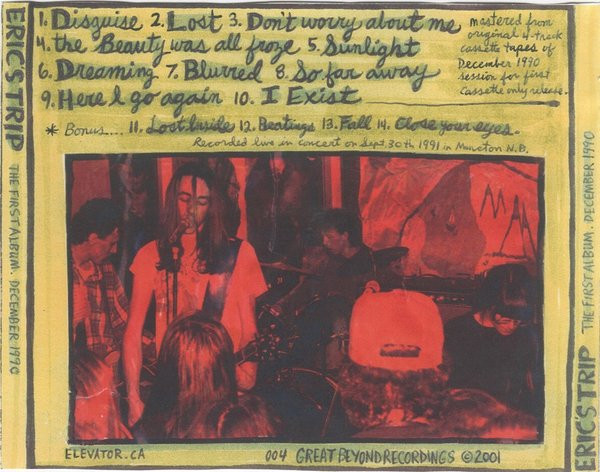 1. Disguise 2. Lost 3. Don't worry about me
4. the Beauty was all froze 5. Sunlight
6. Dreaming 7. Blurred 8. So far away
9. Here I go again 10. I Exist
mastered from
original 4-track
cassette tapes of
December 1990
session for first
cassette only release.
* Bonus.... 11. Lost inside 12. Beatings 13. Fall 14. Close your eyes.
Recorded live in concert on Sept. 30th 1991 in Moncton N.B.
ERICSTRIP THE FIRST ALBUM. DECEMBER 1990
ERICSTRIP THE FIRST ALBUM. DECEMBER 1990
ELEVATOR.CA 004 GREAT BEYOND RECORDINGS © 2001